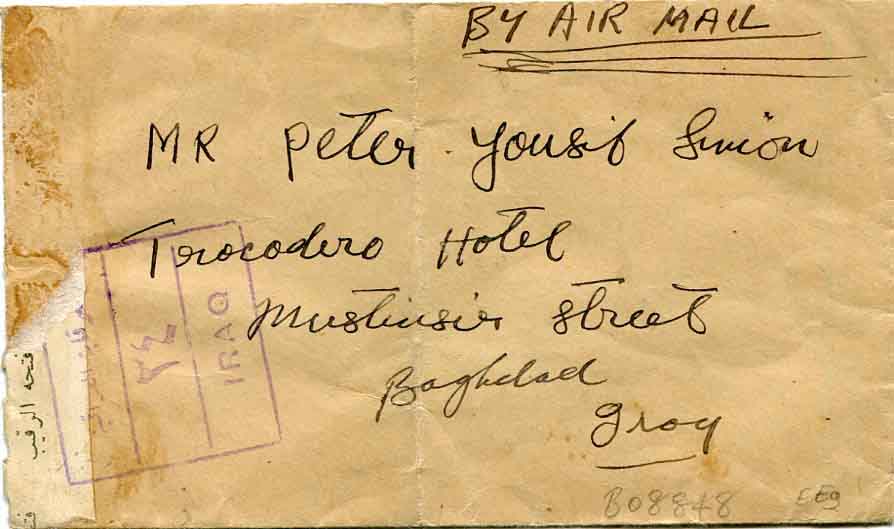 BY AIR MAIL
MR Peter Yousif Simion
Trocodero Hotel
Mustinsir street
Baghdad
Iraq
IRAQ
٢٤
فتحه الرقيب
B08848